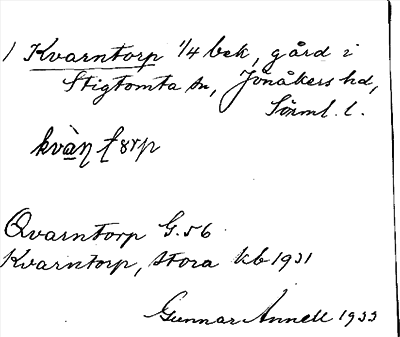 1 Kvarntorp 1/4 bek, gård i
Stigtomta sn, Jönåkers hd,
Sörml. l.
Qvarntorp G. 56
Kvarntorp, stora kb 1931
Gunnar Annell 1933